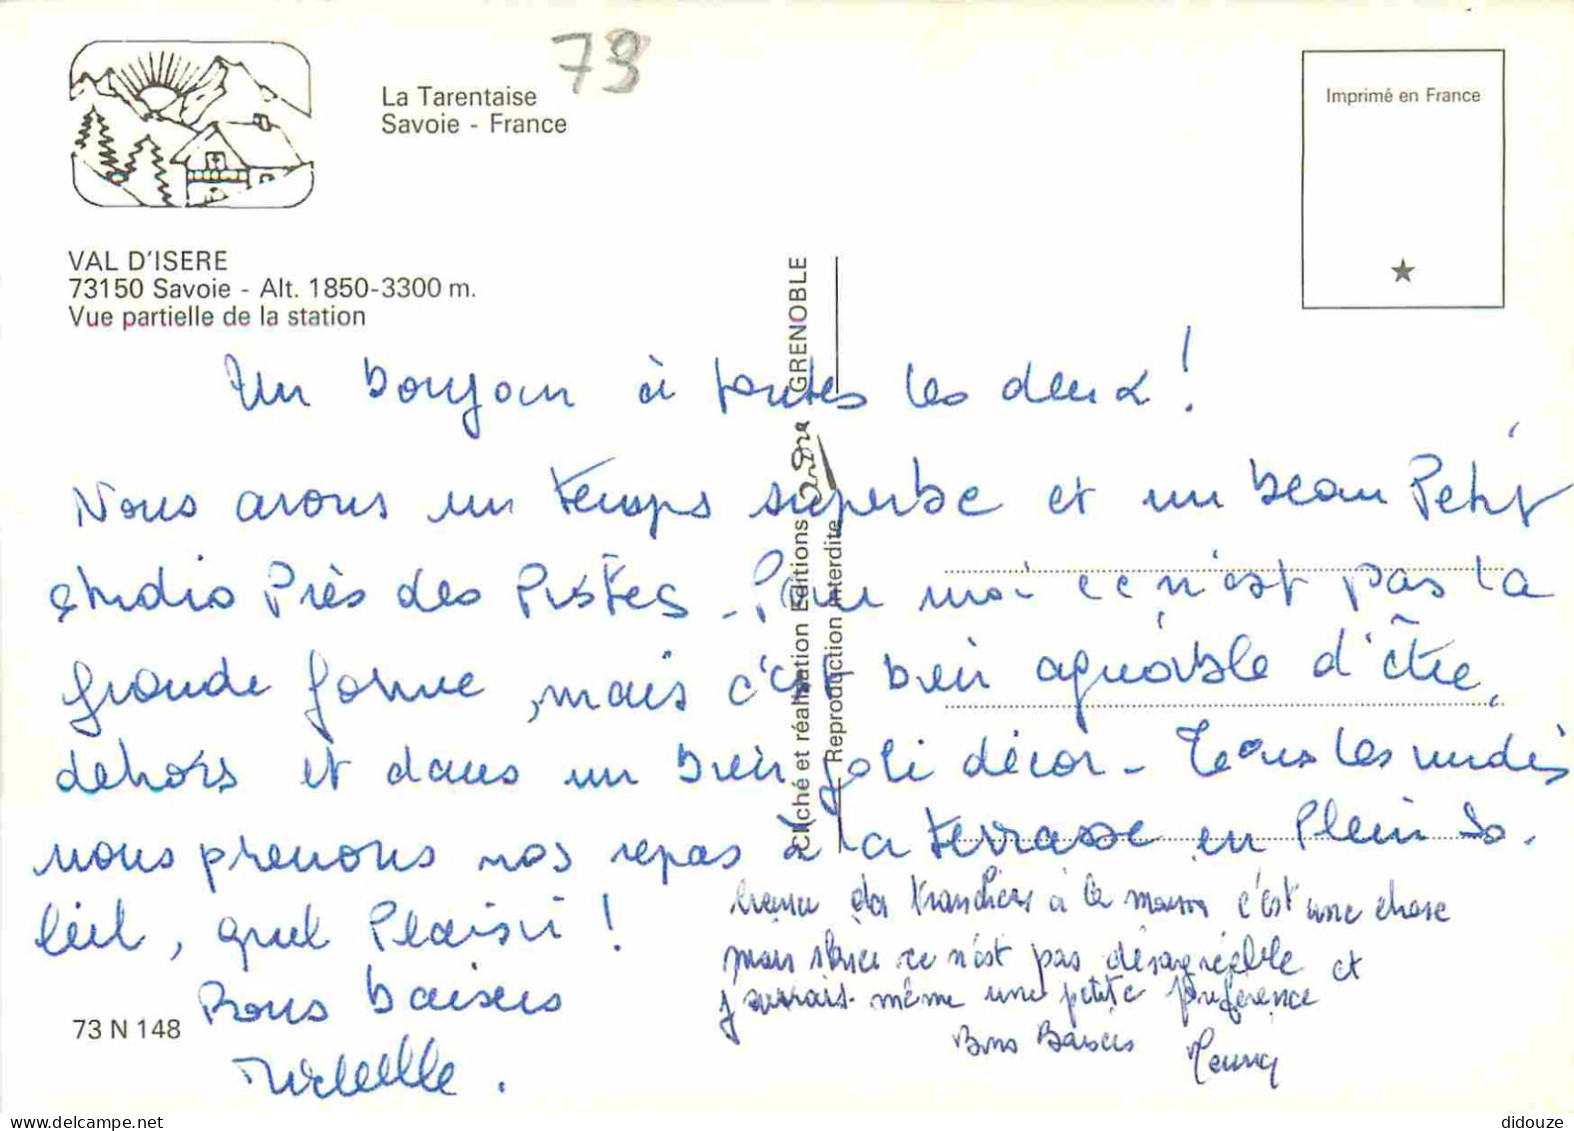 73
La Tarentaise
Savoie - France
Imprimé en France
VAL D'ISERE
73150 Savoie - Alt. 1850-3300 m.
Vue partielle de la station
Cliché et réalisation Editions André GRENOBLE
Reproduction interdite
Un bonjour à toutes les deux !
Nous avons un temps superbe et un beau Petit
studio Près des Pistes - Pour moi ce n'est pas la
grande forme, mais c'est bien agréable d'être
dehors et dans un bien joli décor - Tous les midis
nous prenons nos repas à la terrasse en Plein So-
leil, quel Plaisir !
Bons baisers
à la maison c'est une chose
mais skier ce n'est pas désagréable et
j'aurais même une petite préférence
Bons Baisers
73 N 148
didouze